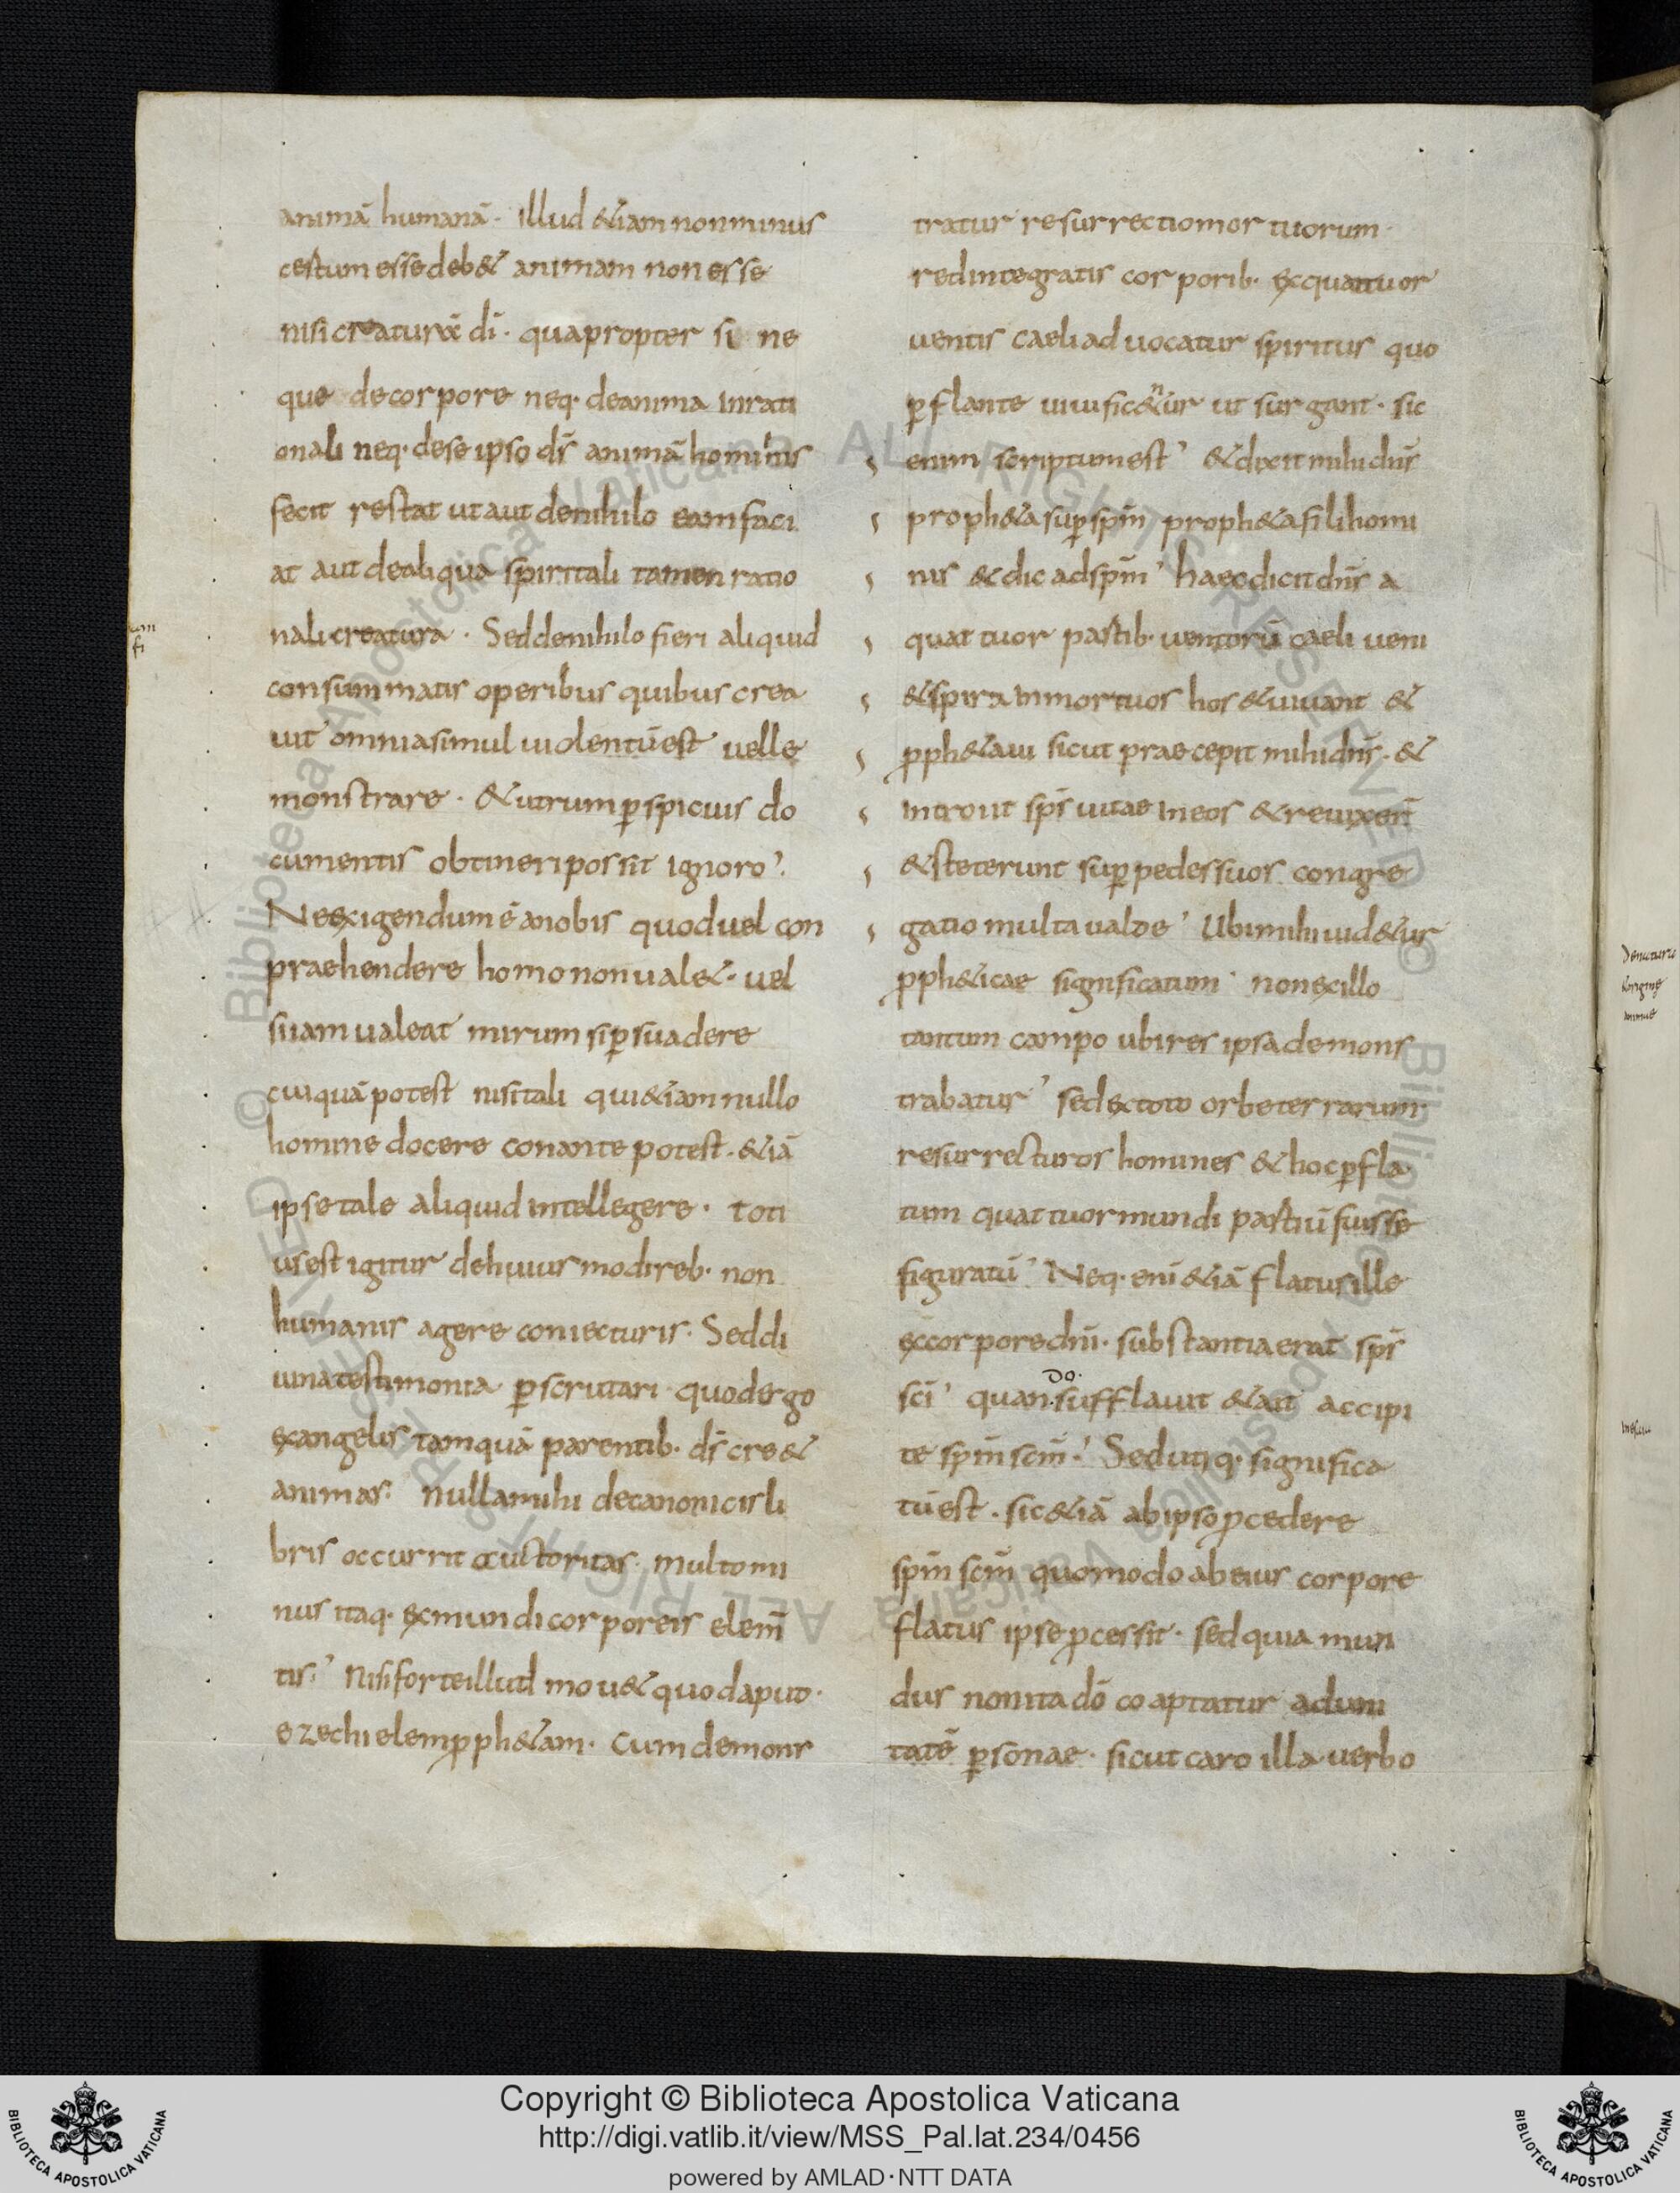 animā humanā. illud &iam non minus
certum esse deb& animam non esse
nisi creaturā dī. quapropter si ne
que de corpore neq· de anima inrati
onali neq· de se ipso dr̄ animā hominis
fecit restat ut aut de nihilo eam faci
at aut de aliqua spiritali tamen ratio
nali creatura. Sed de nihilo fieri aliquid
consummatis operibus quibus crea
uit omnia simul uiolentū est uelle
monstrare. & utrum ꝑspicuis do
cumentis obtineri possit ignoro.
Ne exigendum ē a nobis quod uel con
praehendere homo non ual&. uel
si iam ualeat mirum si ꝑsuadere
cuiquā potest nisi tali qui &iam nullo
homine docere conante potest. &iā
ipse tale aliquid intellegere. toti
us est igitur de huius modi reb· non
humanis agere coniecturis. Sed di
uina testimonia ꝑscrutari quod ergo
ex angelis tamquā parentib· dr̄ cre&
animas. nulla mihi de canonicis li
bris occurrit auctoritas. multo mi
nus itaq· ex mundi corporeis elem̄
tis. Nisi forte illud mou& quod aput
ezechielem ꝓph&am. cum demons
tratur resurrectio mortuorum.
redintegratis corporib· ex quattuor
uentis caeli aduocatur spiritus quo
ꝑflante uiuific&nur ut surgant. sic
enim scriptum est & dixit mihi dn̄s
proph&a suꝑ spm̄ proph&a fili homi
nis & dic ad spm̄ haec dicit dn̄s a
quattuor partib· uentorū caeli ueni
& spira in mortuos hos & uiuant &
ꝓph&aui sicut praecepit mihi dn̄s. &
introiit sps̄ uitae in eos & reuixer̄
& steterunt suꝑ pedes suos congre
gatio multa ualde Ubi mihi uid&ur
ꝓph&icae significatum non ex illo
tantum campo ubi res ipsa demons
trabatur sed ex toto orbe terrarum
resurrecturos homines & hoc ꝑ fla
tum quattuor mundi partiū fuisse
figuratū Neq· enī &iā flatus ille
ex corpore dn̄i. substantia erat sps̄
scī quan do. sufflauit & ait accipi
te spm̄ scm̄. Sed utiq· significa
tū est. sic &iā ab ipso ꝓcedere
spm̄ scm̄ quomodo ab eius corpore
flatus ipse ꝓcessit. sed quia mun
dus non ita dō coaptatur ad uni
tatē ꝑsonae. sicut caro illa uerbo
Copyright © Biblioteca Apostolica Vaticana
http://digi.vatlib.it/view/MSS_Pal.lat.234/0456
powered by AMLAD·NTT DATA
BIBLIOTECA APOSTOLICA VATICANA
BIBLIOTECA APOSTOLICA VATICANA